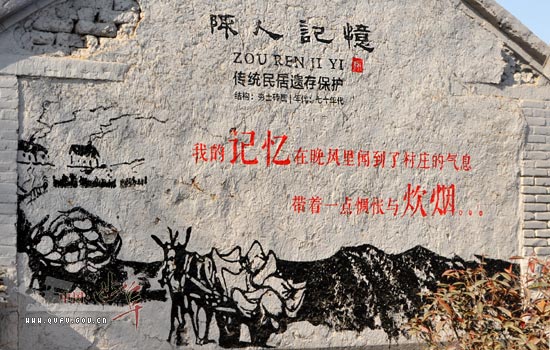 陬人記憶
ZOU REN JI YI
传统民居遗存保护
结构：夯土砖瓦 | 年代：七十年代
我的记忆在晚风里闻到了村庄的气息
带着一点惆怅与炊烟。。。
WWW.QUFU.GOV.CN